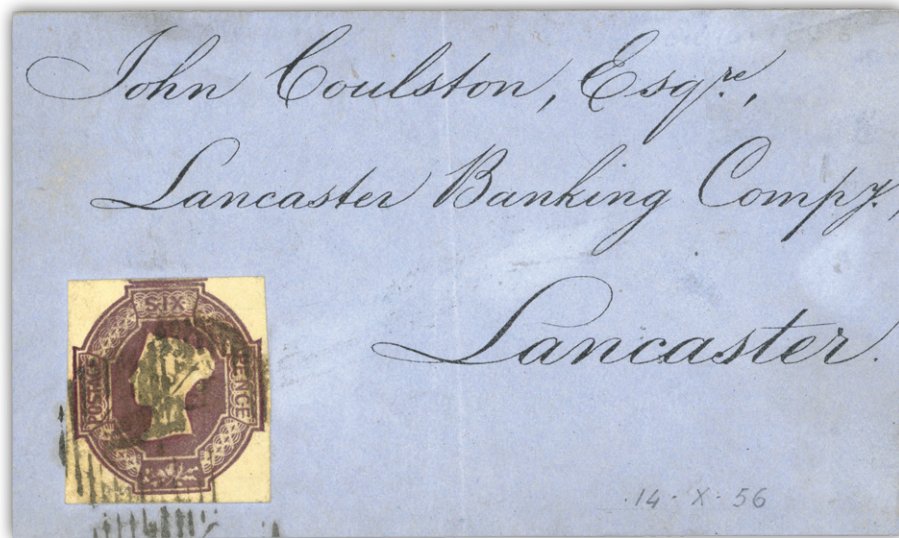 John Coulston, Esqre,
Lancaster Banking Compy.,
Lancaster.
SIX PENCE
POSTAGE
14 · X · 56